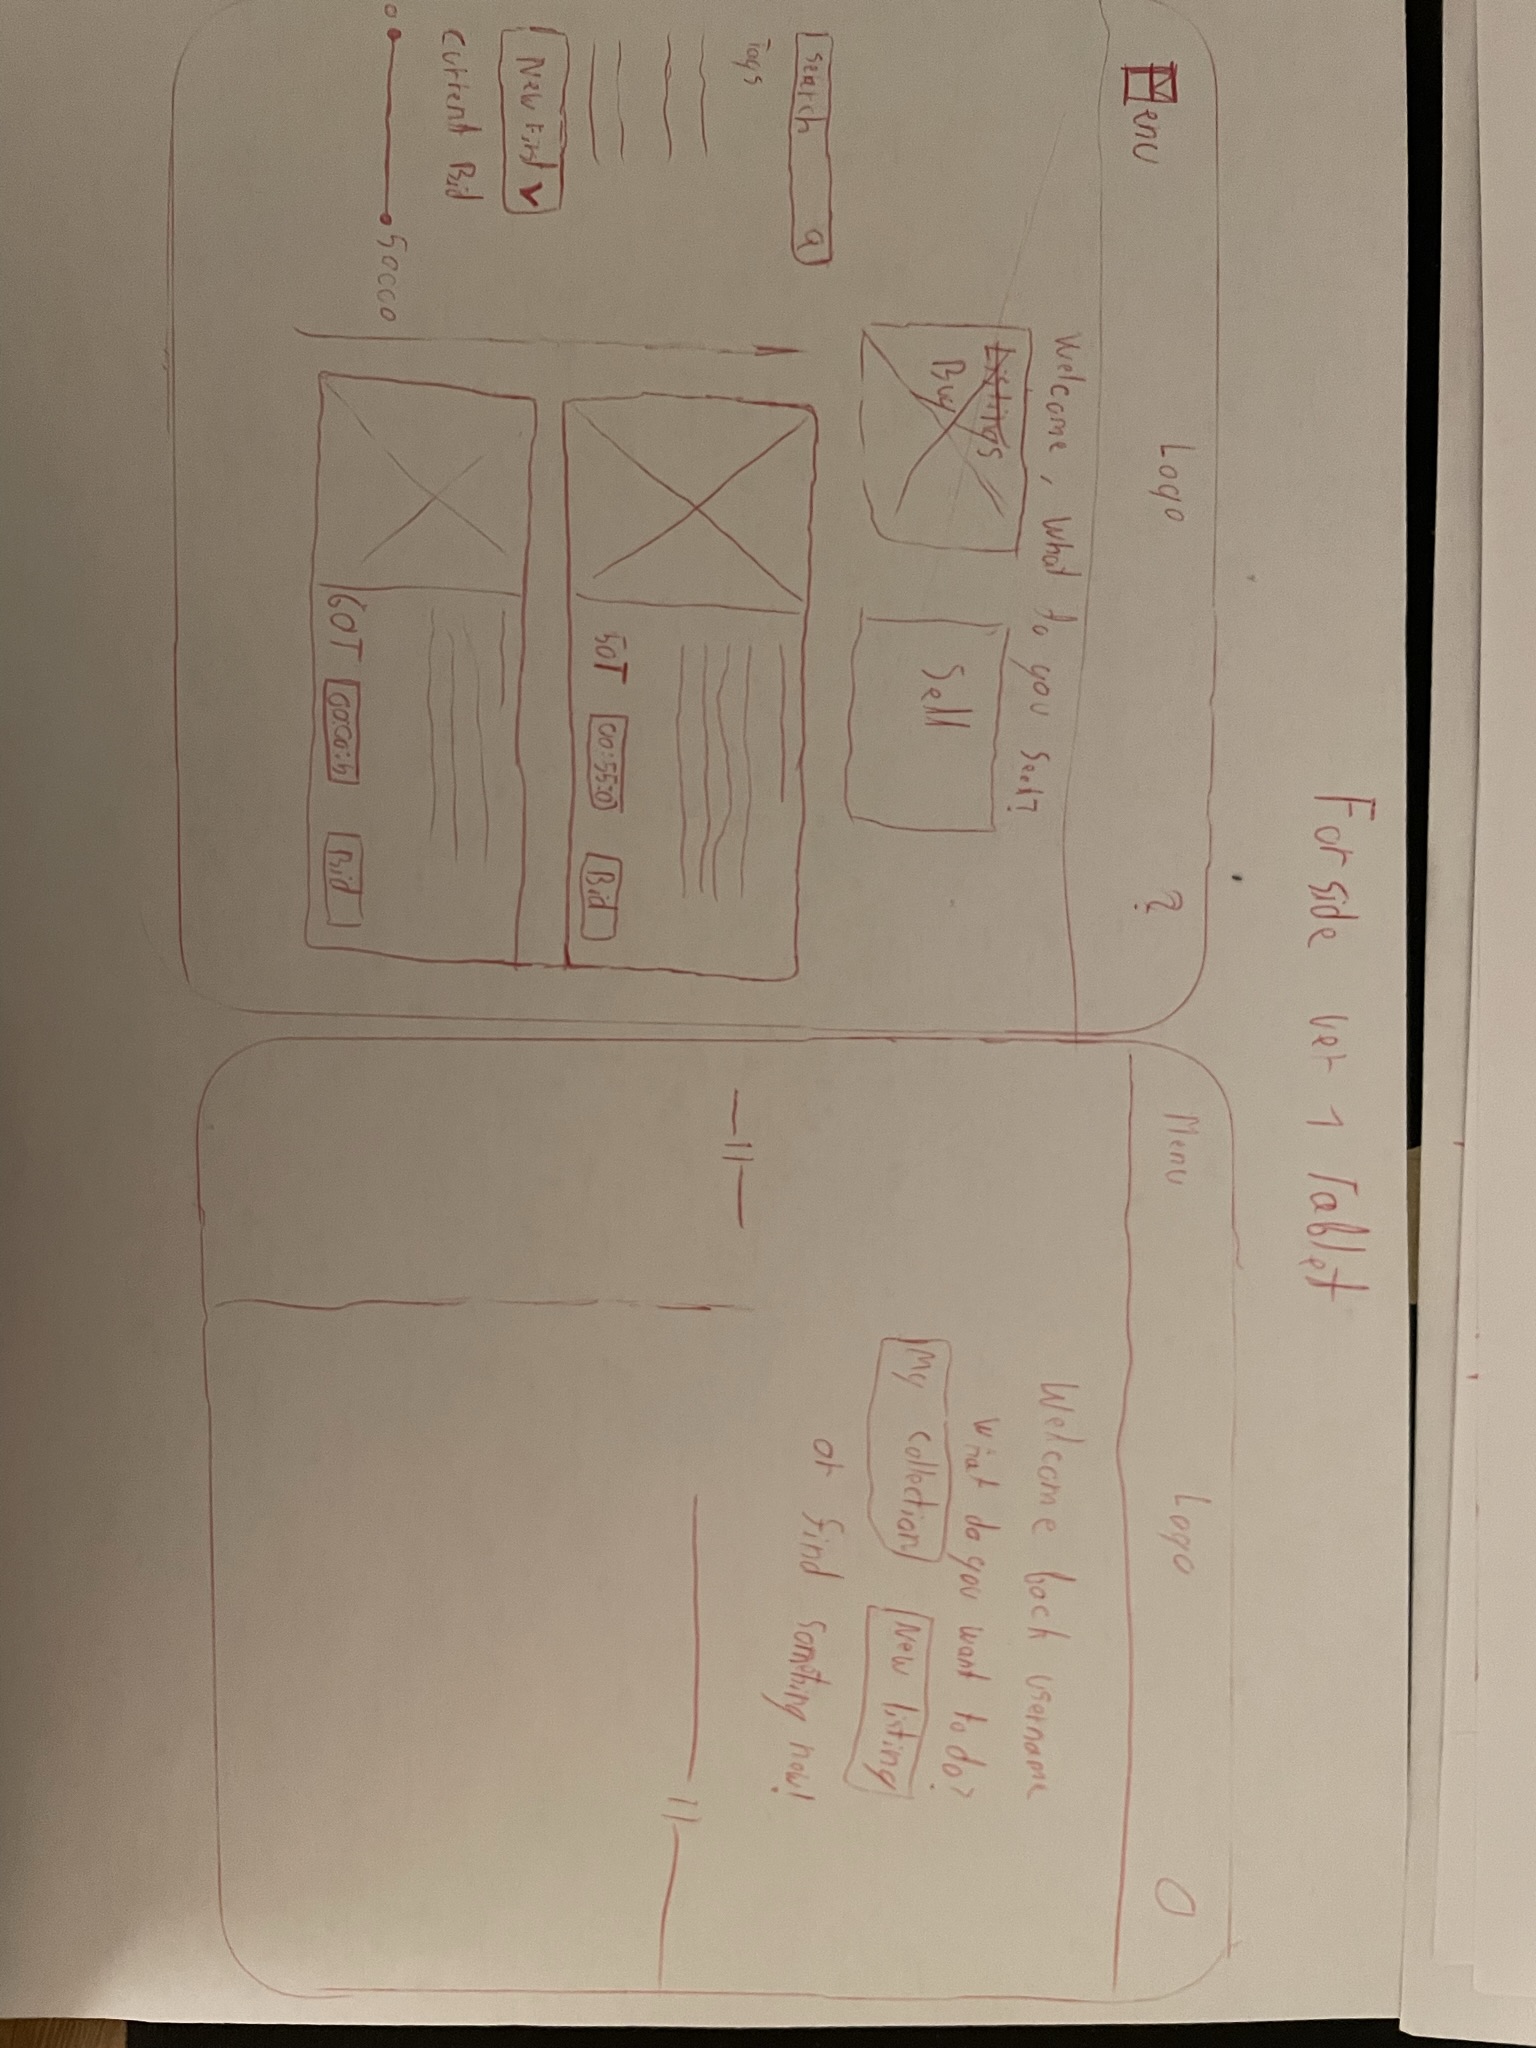 Forside ver 1 Tablet
Menu
Logo
?
Welcome, what to you seek?
Listings
Buy
Sell
Search
Tags
New First
Current Bid
0
50000
50T
00:55:0
Bid
60T
00:00:5
Bid
Menu
Logo
Welcome back username
What do you want to do?
My collection
New listing
or find something new!